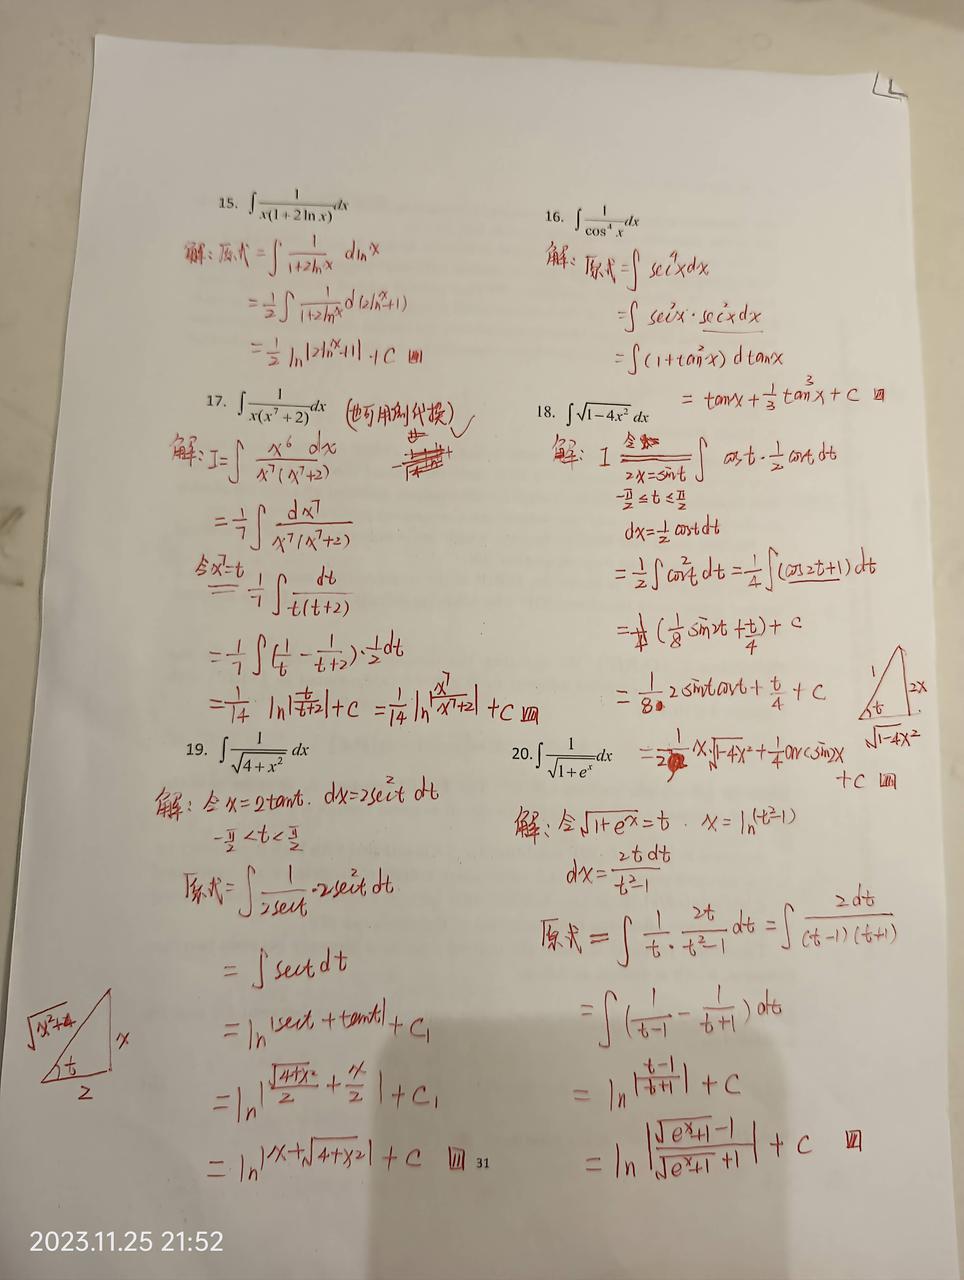 15. ∫ 1/(x(1+2 ln x)) dx
解: 原式 = ∫ 1/(1+2lnx) dlnx
= 1/2 ∫ 1/(1+2lnx) d(2lnx+1)
= 1/2 ln|2lnx+1| + C
16. ∫ 1/cos⁴x dx
解: 原式 = ∫ sec⁴x dx
= ∫ sec²x · sec²x dx
= ∫ (1+tan²x) d tanx
= tanx + 1/3 tan³x + C
17. ∫ 1/(x(x⁷+2)) dx (也可用倒代换)
解: I = ∫ x⁶ dx/(x⁷(x⁷+2))
= 1/7 ∫ dx⁷/(x⁷(x⁷+2))
令x⁷=t 1/7 ∫ dt/(t(t+2))
= 1/7 ∫ (1/t - 1/(t+2)) · 1/2 dt
= 1/14 ln|t/(t+2)| + C = 1/14 ln|x⁷/(x⁷+2)| + C
18. ∫ √(1-4x²) dx
解: I 令 2x=sint ∫ cost · 1/2 cost dt
-π/2 ≤ t ≤ π/2
dx = 1/2 cost dt
= 1/2 ∫ cos²t dt = 1/4 ∫ (cos2t+1) dt
= (1/8 sin2t + t/4) + C
= 1/8 · 2sintcost + t/4 + C
= 1/2 x·√(1-4x²) + 1/4 arcsin2x
+ C
1
2x
t
√(1-4x²)
19. ∫ 1/√(4+x²) dx
解: 令 x=2tant. dx=2sec²t dt
-π/2 < t < π/2
原式 = ∫ 1/(2sect) · 2sec²t dt
= ∫ sect dt
= ln|sect + tant| + C₁
= ln|√(4+x²)/2 + x/2| + C₁
= ln|x+√(4+x²)| + C
√(x²+4)
x
t
2
20. ∫ 1/√(1+eˣ) dx
解: 令 √(1+eˣ)=t . x=ln(t²-1)
dx = 2t dt/(t²-1)
原式 = ∫ 1/t · 2t/(t²-1) dt = ∫ 2dt/((t-1)(t+1))
= ∫ (1/(t-1) - 1/(t+1)) dt
= ln|(t-1)/(t+1)| + C
= ln|(√(eˣ+1)-1)/(√(eˣ+1)+1)| + C
31
2023.11.25 21:52